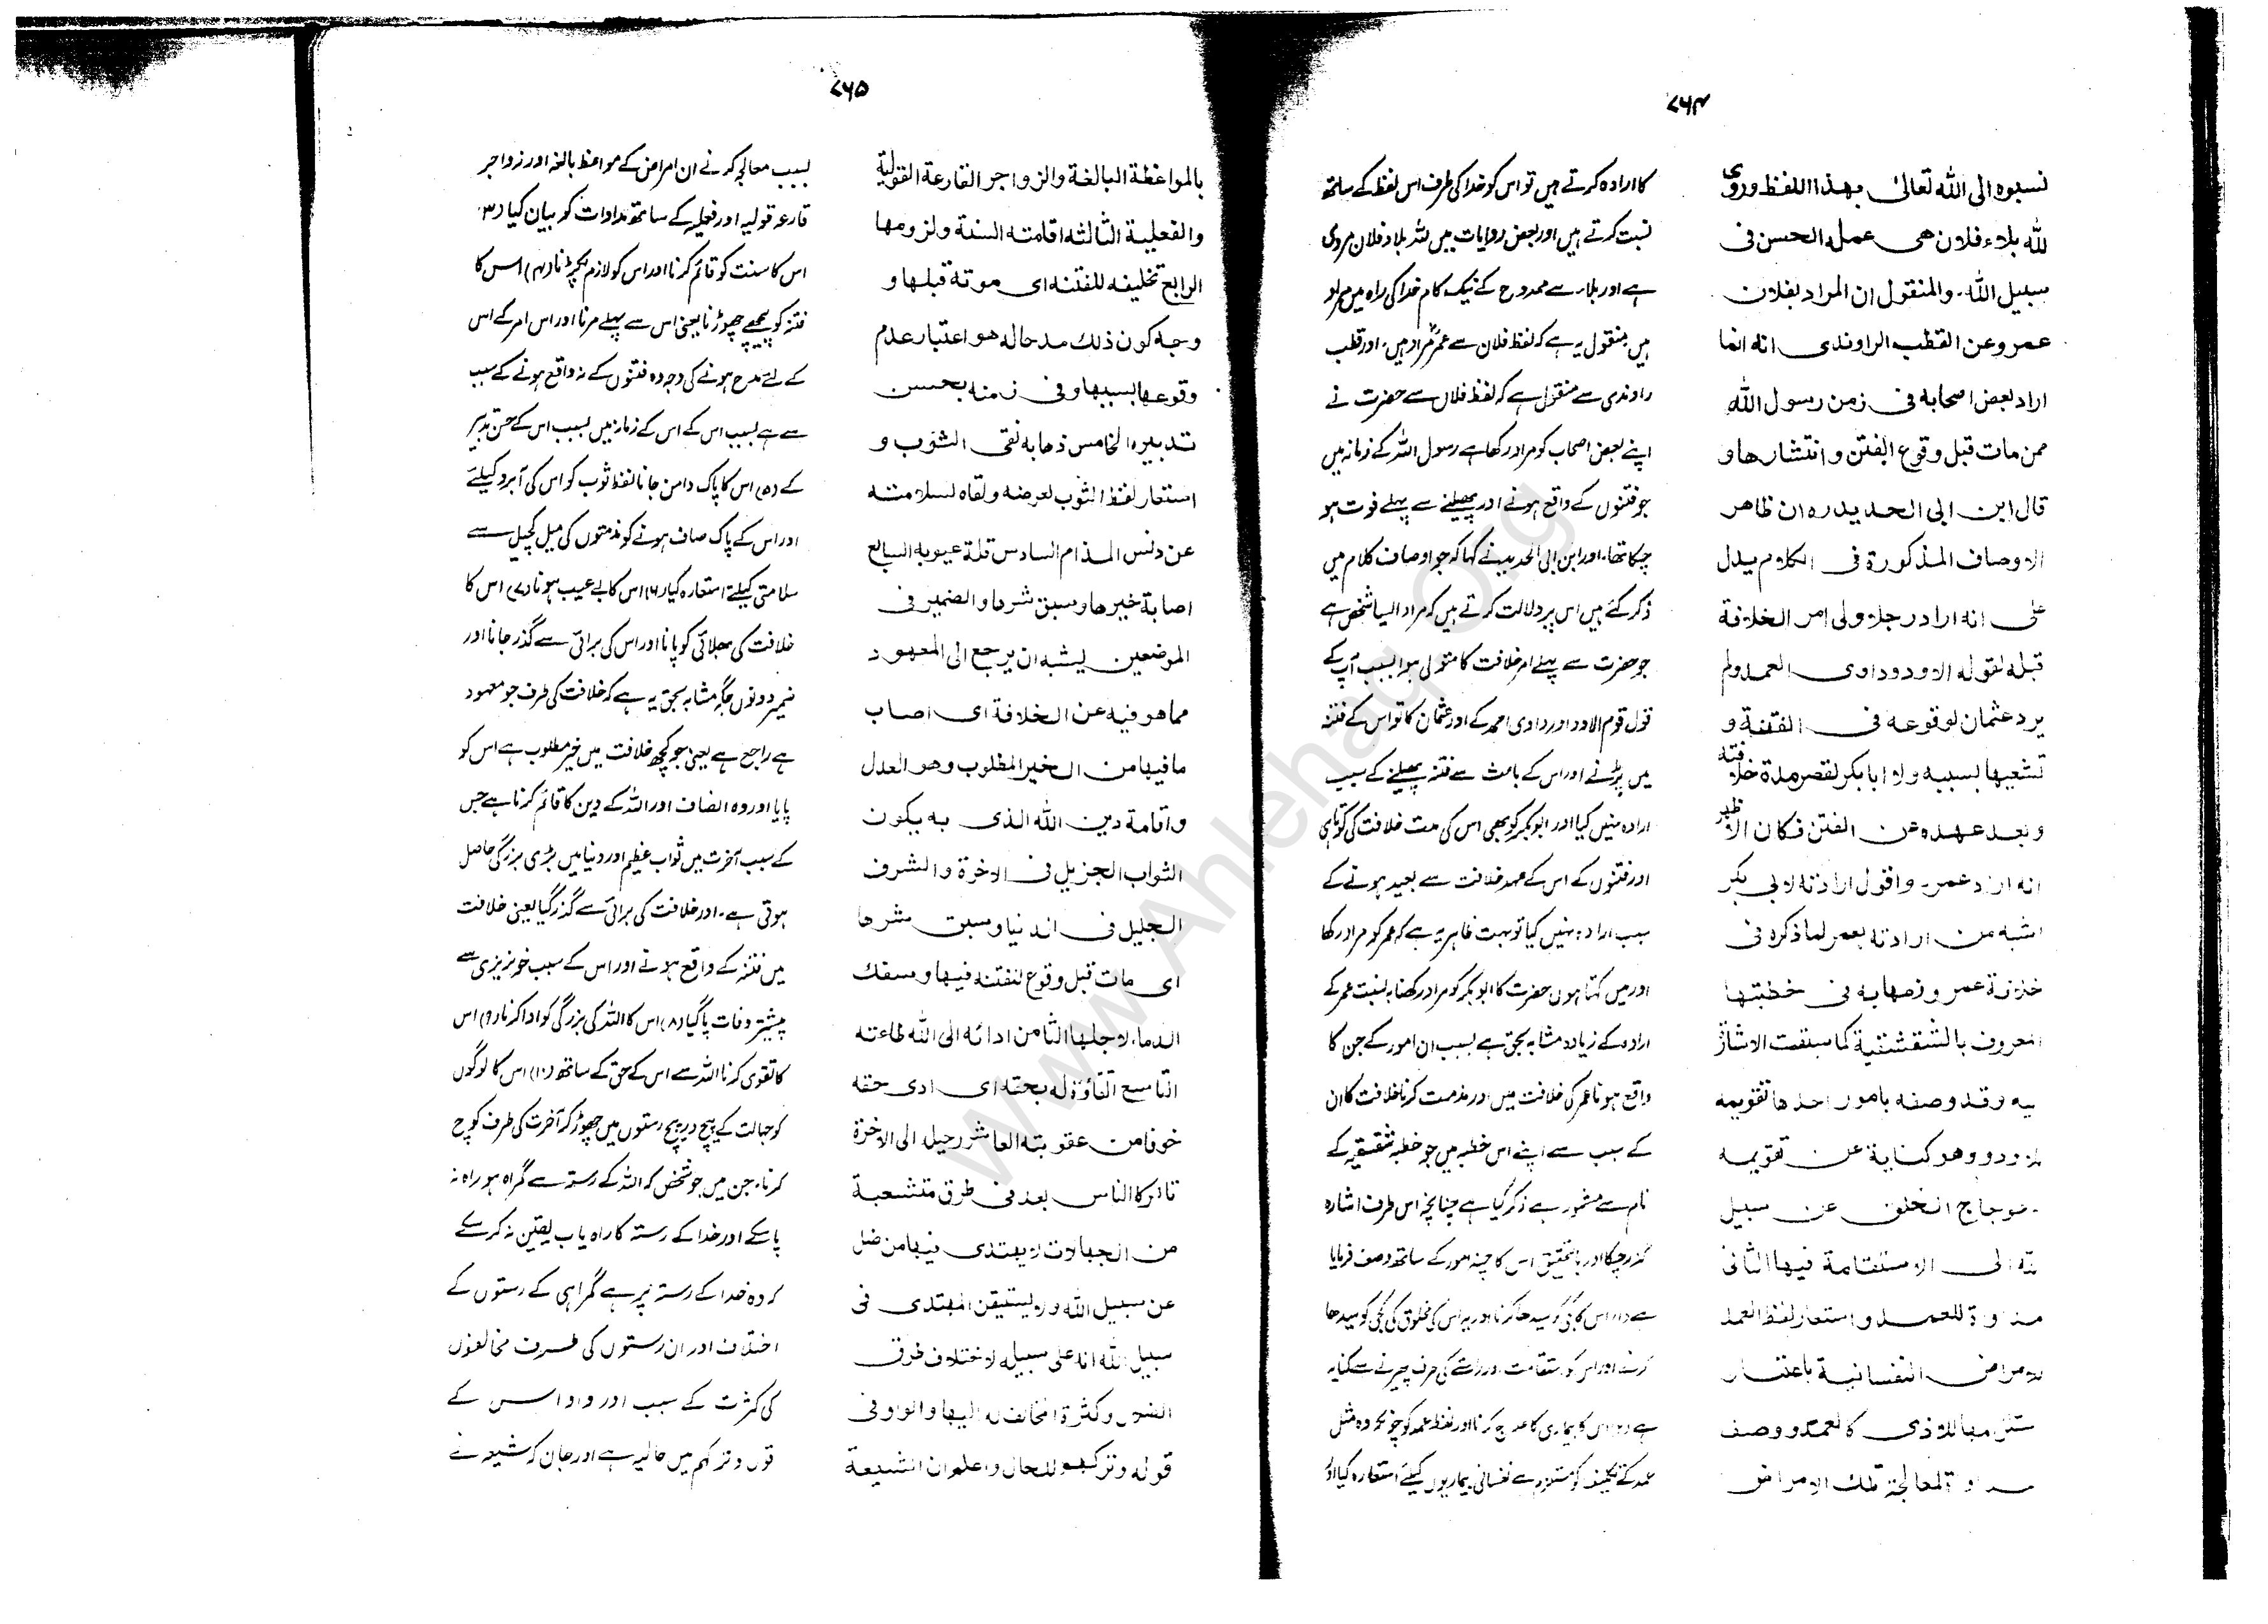 ۷۶۴
نسبوه الى الله تعالىٰ بهذا اللفظ وروى
لله بلاء فلان هى عمله الحسن فى
سبيل الله ـ والمنقول ان المراد بفلان
عمرو عن القطب الراوندى انه انما
اراد بعض اصحابه فى زمن رسول الله
ممن مات قبل وقوع الفتن وانتشارها و
قال ابن ابى الحديد ره ان ظاهر
الاوصاف المذكورة فى الكلام يدل
على انه اراد رجلا ولى امر الخلافة
قبله لقوله الاود وداوى العمد ولم
يرد عثمان لوقوعه فى الفتنة و
تشعبها بسببه ولا ابا بكر لقصر مدة خلافته
وبعد عهده عن الفتن فكان الاظهر
انه اراد عمر ـ واقول ارادته لابى بكر
اشبه من ارادته بعمر لما ذكره فى
خلافة عمر وذمها به فى خطبتها
المعروف بالشقشقية كما سبقت الاشارة
اليه وقد وصفه بامور احدها تقويمه
الاود وهو كناية عن تقويمه
لاعوجاج الخلق عن سبيل
الله الى الاستقامة فيها الثانى
مداواة للعمد واستعار لفظ العمد
للامراض النفسانية باعتبار
كالعمد ووصف
المداواة لمعالجة تلك الامراض
کا ارادہ کرتے ہیں تو اس کو خدا کی طرف اس لفظ کے ساتھ
نسبت کرتے ہیں اور بعض روایات میں للہ بلاد فلان مروی
ہے اور بلاء سے ممدوح کے نیک کام خدا کی راہ میں مراد
ہیں منقول یہ ہے کہ لفظ فلاں سے عمرؓ مراد ہیں ۔ اور قطب
راوندی سے منقول ہے کہ لفظ فلاں سے حضرت نے
اپنے بعض اصحاب کو مراد رکھا ہے رسول اللہ کے زمانہ میں
جو فتنوں کے واقع ہونے اور پھیلنے سے پہلے فوت ہو
چکا تھا۔ اور ابن ابی الحدید نے کہا کہ جو اوصاف کلام میں
ذکر کئے ہیں اس پر دلالت کرتے ہیں کہ مراد ایسا شخص ہے
جو حضرت سے پہلے امر خلافت کا متولی ہوا بسبب آپ کے
قول قوم الاود اور داوی العمد کے اور عثمان کا تو اس کے فتنہ
میں پڑنے اور اس کے باعث سے فتنہ پھیلنے کے سبب
ارادہ نہیں کیا اور ابوبکر کو بھی اس کی مدت خلافت کی کوتاہی
اور فتنوں کے اس کے عہد خلافت سے بعید ہونے کے
سبب ارادہ نہیں کیا تو بہت ظاہر یہ ہے کہ عمر کو مراد رکھا
اور میں کہتا ہوں حضرت کا ابوبکر کو مراد رکھنا بہ نسبت عمر کے
ارادہ کے زیادہ مشابہ بحق ہے بسبب ان امور کے جن کا
واقع ہونا عمر کی خلافت میں اور مذمت کرنا خلافت کا ان
کے سبب سے اپنے اس خطبہ میں جو خطبہ شقشقیہ کے
نام سے مشہور ہے ذکر کیا ہے چنانچہ اس طرف اشارہ
گذر چکا اور بالتحقیق اس کا چند امور کے ساتھ وصف فرمایا
ہے (۱) اس کا کجی کو سیدھا کرنا اور یہ اس کی مخلوق کی کجی کو سیدھا
کرنے اور اس کو استقامت اور راستے کی طرف پھیرنے سے کنایہ
ہے (۲) اس کا بیماری کا علاج کرنا اور لفظ عمد کو چونکہ وہ مثل
عمد کے تکلیف کو مستلزم ہے نفسانی بیماریوں کیلئے استعارہ کیا اور
۷۶۵
بالمواعظة البالغة والزواجر القارعة القولية
والفعلية الثالثه اقامته السنة ولزومها
الرابع تخليفه للفتنه اى موتة قبلها و
وجه كون ذلك مدحاله هو اعتبار عدم
وقوعها بسببها وفى زمنه بحسن
تدبيره الخامس ذهابه نقى الثوب و
استعار لفظ الثوب لعرضه ونقاه لسلامته
عن دنس المذام السادس قلة عيوبه السابع
اصابة خيرها وسبق شرها والضمير فى
الموضعين يشبه ان يرجع الى المعهود
مما هو فيه عن الخلافة اى اصاب
ما فيها من الخير المطلوب وهو العدل
واقامة دين الله الذى به يكون
الثواب الجزيل فى الاخرة والشرف
الجليل فى الدنيا وسبق شرها
اى مات قبل وقوع لفتنة فيها وسفك
الدماء لاجلها الثامن ادائه الى الله طاعته
التاسع اتقاؤه له بحقه اى ادى حقه
خوفا من عقوبته العاشر رحيله الى الاخرة
تاركا الناس بعده فى طرق متشعبة
من الجهالات لا يهتدى فيها من ضل
عن سبيل الله ولا يستيقن المهتدى فى
سبيل الله انه على سبيله لاختلاف طرق
الضلال وكثرة المخالف له اليها والواو فى
قوله وتركهم للحال واعلم ان الشيعة
بسبب معالجہ کرنے ان امراض کے مواعظ بالغہ اور زواجر
قارعہ قولیہ اور فعلیہ کے ساتھ مداوات کو بیان کیا (۳)
اس کا سنت کو قائم کرنا اور اس کو لازم پکڑنا (۴) اس کا
فتنہ کو پیچھے چھوڑنا یعنی اس سے پہلے مرنا اور اس امر کے اس
کے لئے مدح ہونے کی وجہ وہ فتنوں کے نہ واقع ہونے کے سبب
سے ہے بسبب اس کے اس کے زمانہ میں بسبب اس کے حسن تدبیر
کے (۵) اس کا پاک دامن جانا لفظ ثوب کو اس کی آبرو کیلئے
اور اس کے پاک صاف ہونے کو مذمتوں کی میل کچیل سے
سلامتی کیلئے استعارہ کیا (۶) اس کا بے عیب ہونا (۷) اس کا
خلافت کی بھلائی کو پانا اور اس کی برائی سے گذر جانا اور
ضمیر دونوں جگہ مشابہ بحق یہ ہے کہ خلافت کی طرف جو معہود
ہے راجع ہے یعنی جو کچھ خلافت میں خیر مطلوب ہے اس کو
پایا اور وہ انصاف اور اللہ کے دین کا قائم کرنا ہے جس
کے سبب آخرت میں ثواب عظیم اور دنیا میں بڑی بزرگی حاصل
ہوتی ہے ۔ اور خلافت کی برائی سے گذر گیا یعنی خلافت
میں فتنہ کے واقع ہونے اور اس کے سبب خونریزی سے
پیشتر وفات پا گیا (۸) اس کا اللہ کی بزرگی کو ادا کرنا (۹) اس
کا تقوی کرنا اللہ سے اس کے حق کے ساتھ (۱۰) اس کا لوگوں
کو جہالت کے پیچ در پیچ رستوں میں چھوڑ کر آخرت کی طرف کوچ
کرنا، جن میں جو شخص کہ اللہ کے رستہ سے گمراہ ہو راہ نہ
پا سکے اور خدا کے رستہ کا راہ یاب یقین نہ کر سکے
کہ وہ خدا کے رستہ پر ہے گمراہی کے رستوں کے
اختلاف اور ان رستوں کی طرف مخالفوں
کی کثرت کے سبب اور واو اس کے
قول وترکہم میں حالیہ ہے اور جان کہ شیعہ نے
www.Ahlehaq.Org